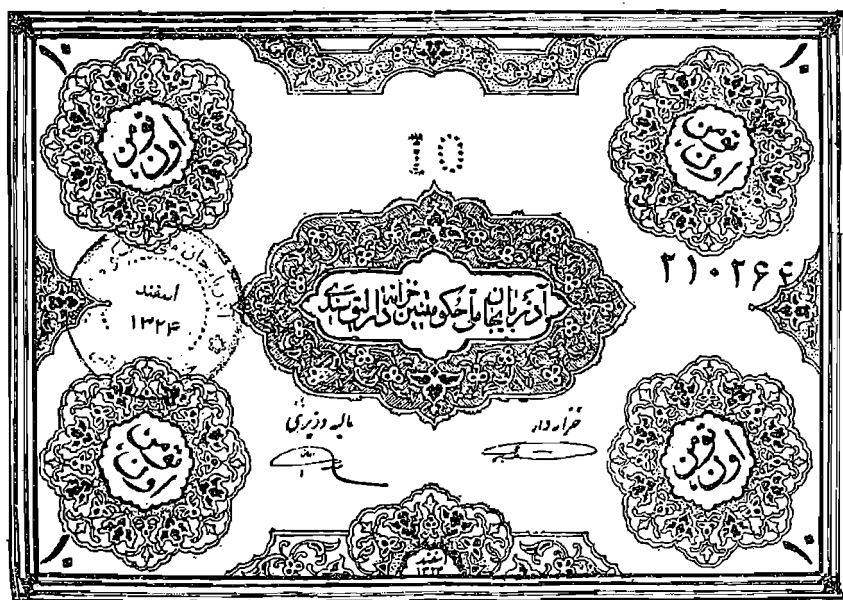 ۱۰
۱۰
اون تومن
تومن اون
10
۲۱۰۲۶۴
اسفند
۱۳۲۴
آذربایجان ملی حکومتینین خزانه دارلیق سندی
مالیه وزیری
خزانه دار
تومن اون
اون تومن
۱۰
۱۰
اسفند
۱۳۲۴